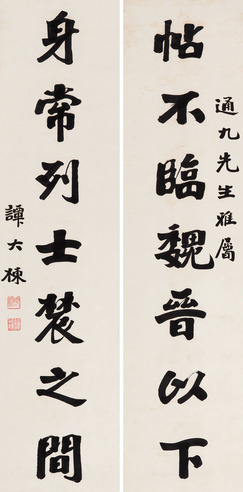 通九先生雅屬
帖不臨魏晉以下
身常列士辳之間
譚大棟